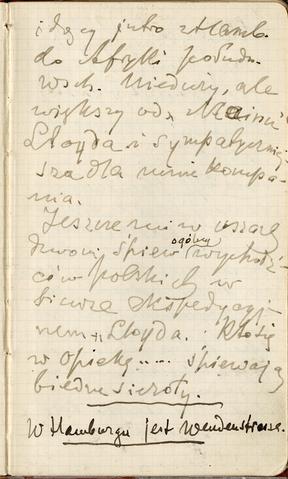 idący jutro z Hamb.
do Afryki połudn.
wsch. Nieduży, ale
większy od
Lloyda i sympatyczniej-
sza dla mnie kompa-
nia.
Jeszcze mi w uszach
dzwoni śpiew ogólny wychodź-
ców polskich w
biurze ekspedycyj-
nem Lloyda.
w opiekę.... śpiewają
biedne sieroty.
W Hamburgu jest Wendenstrasse.